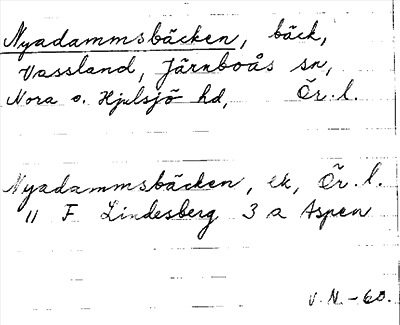 Nyadammsbäcken, bäck,
Vassland, Järnboås sn,
Nora o. Hjulsjö hd, Ör. l.
Nyadammsbäcken, ek, Ör. l.
" F Lindesberg 3 a Aspen
V. N. -60.